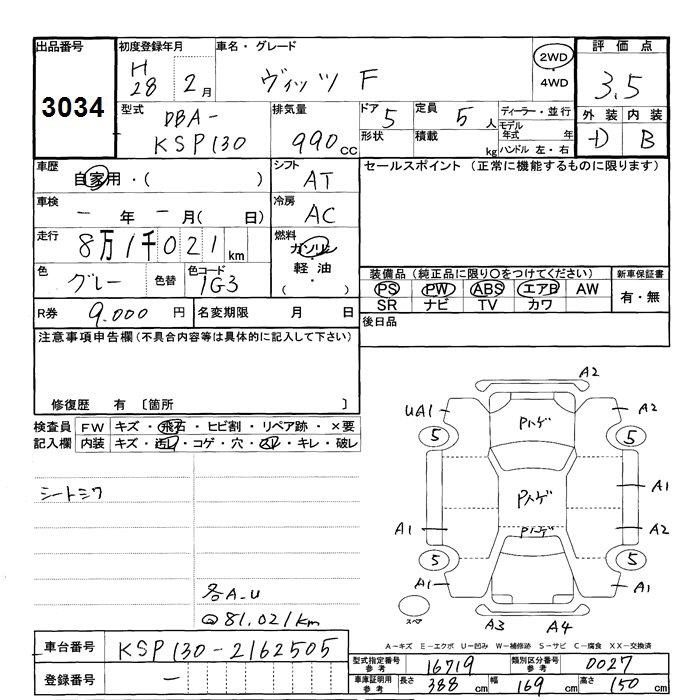 出品番号 初度登録年月 車名・グレード 評価点
3034 H28 2月 ヴィッツ F 2WD・4WD 3.5
型式 DBA-KSP130 排気量 990cc ドア 5 定員 5人 ディーラー・並行 外装 内装
形状 積載 kg モデル年式 年 ハンドル 左・右 D B
車歴 自家用・( ) シフト AT セールスポイント (正常に機能するものに限ります)
車検 ー年ー月( 日) 冷房 AC
走行 8万1千021km 燃料 ガソリン・軽油 ( ・ )
色 グレー 色替 色コード 1G3 装備品 (純正品に限り○をつけてください) 新車保証書
PS PW ABS エアB AW 有・無
SR ナビ TV カワ
R券 9.000円 名変期限 月 日 後日品
注意事項申告欄 (不具合内容等は具体的に記入して下さい)
修復歴 有 〔箇所 〕
検査員 FW キズ・飛石・ヒビ割・リペア跡・×要
記入欄 内装 キズ・汚レ・コゲ・穴・スレ・キレ・破レ
シートシワ
各A.U
@81,021km
A2
UA1 Pハゲ A2
5 5
Pハゲ A1
A1 Pハゲ A2
5 5
A1 A1
スペア A3 A4
A−キズ E−エクボ U−凹み W−補修跡 S−サビ C−腐食 XX−交換済
車台番号 KSP130-2162505
登録番号 ー
型式指定番号 参考 16719 類別区分番号 参考 0027
車庫証明用 参考 長さ 388cm 幅 169cm 高さ 150cm